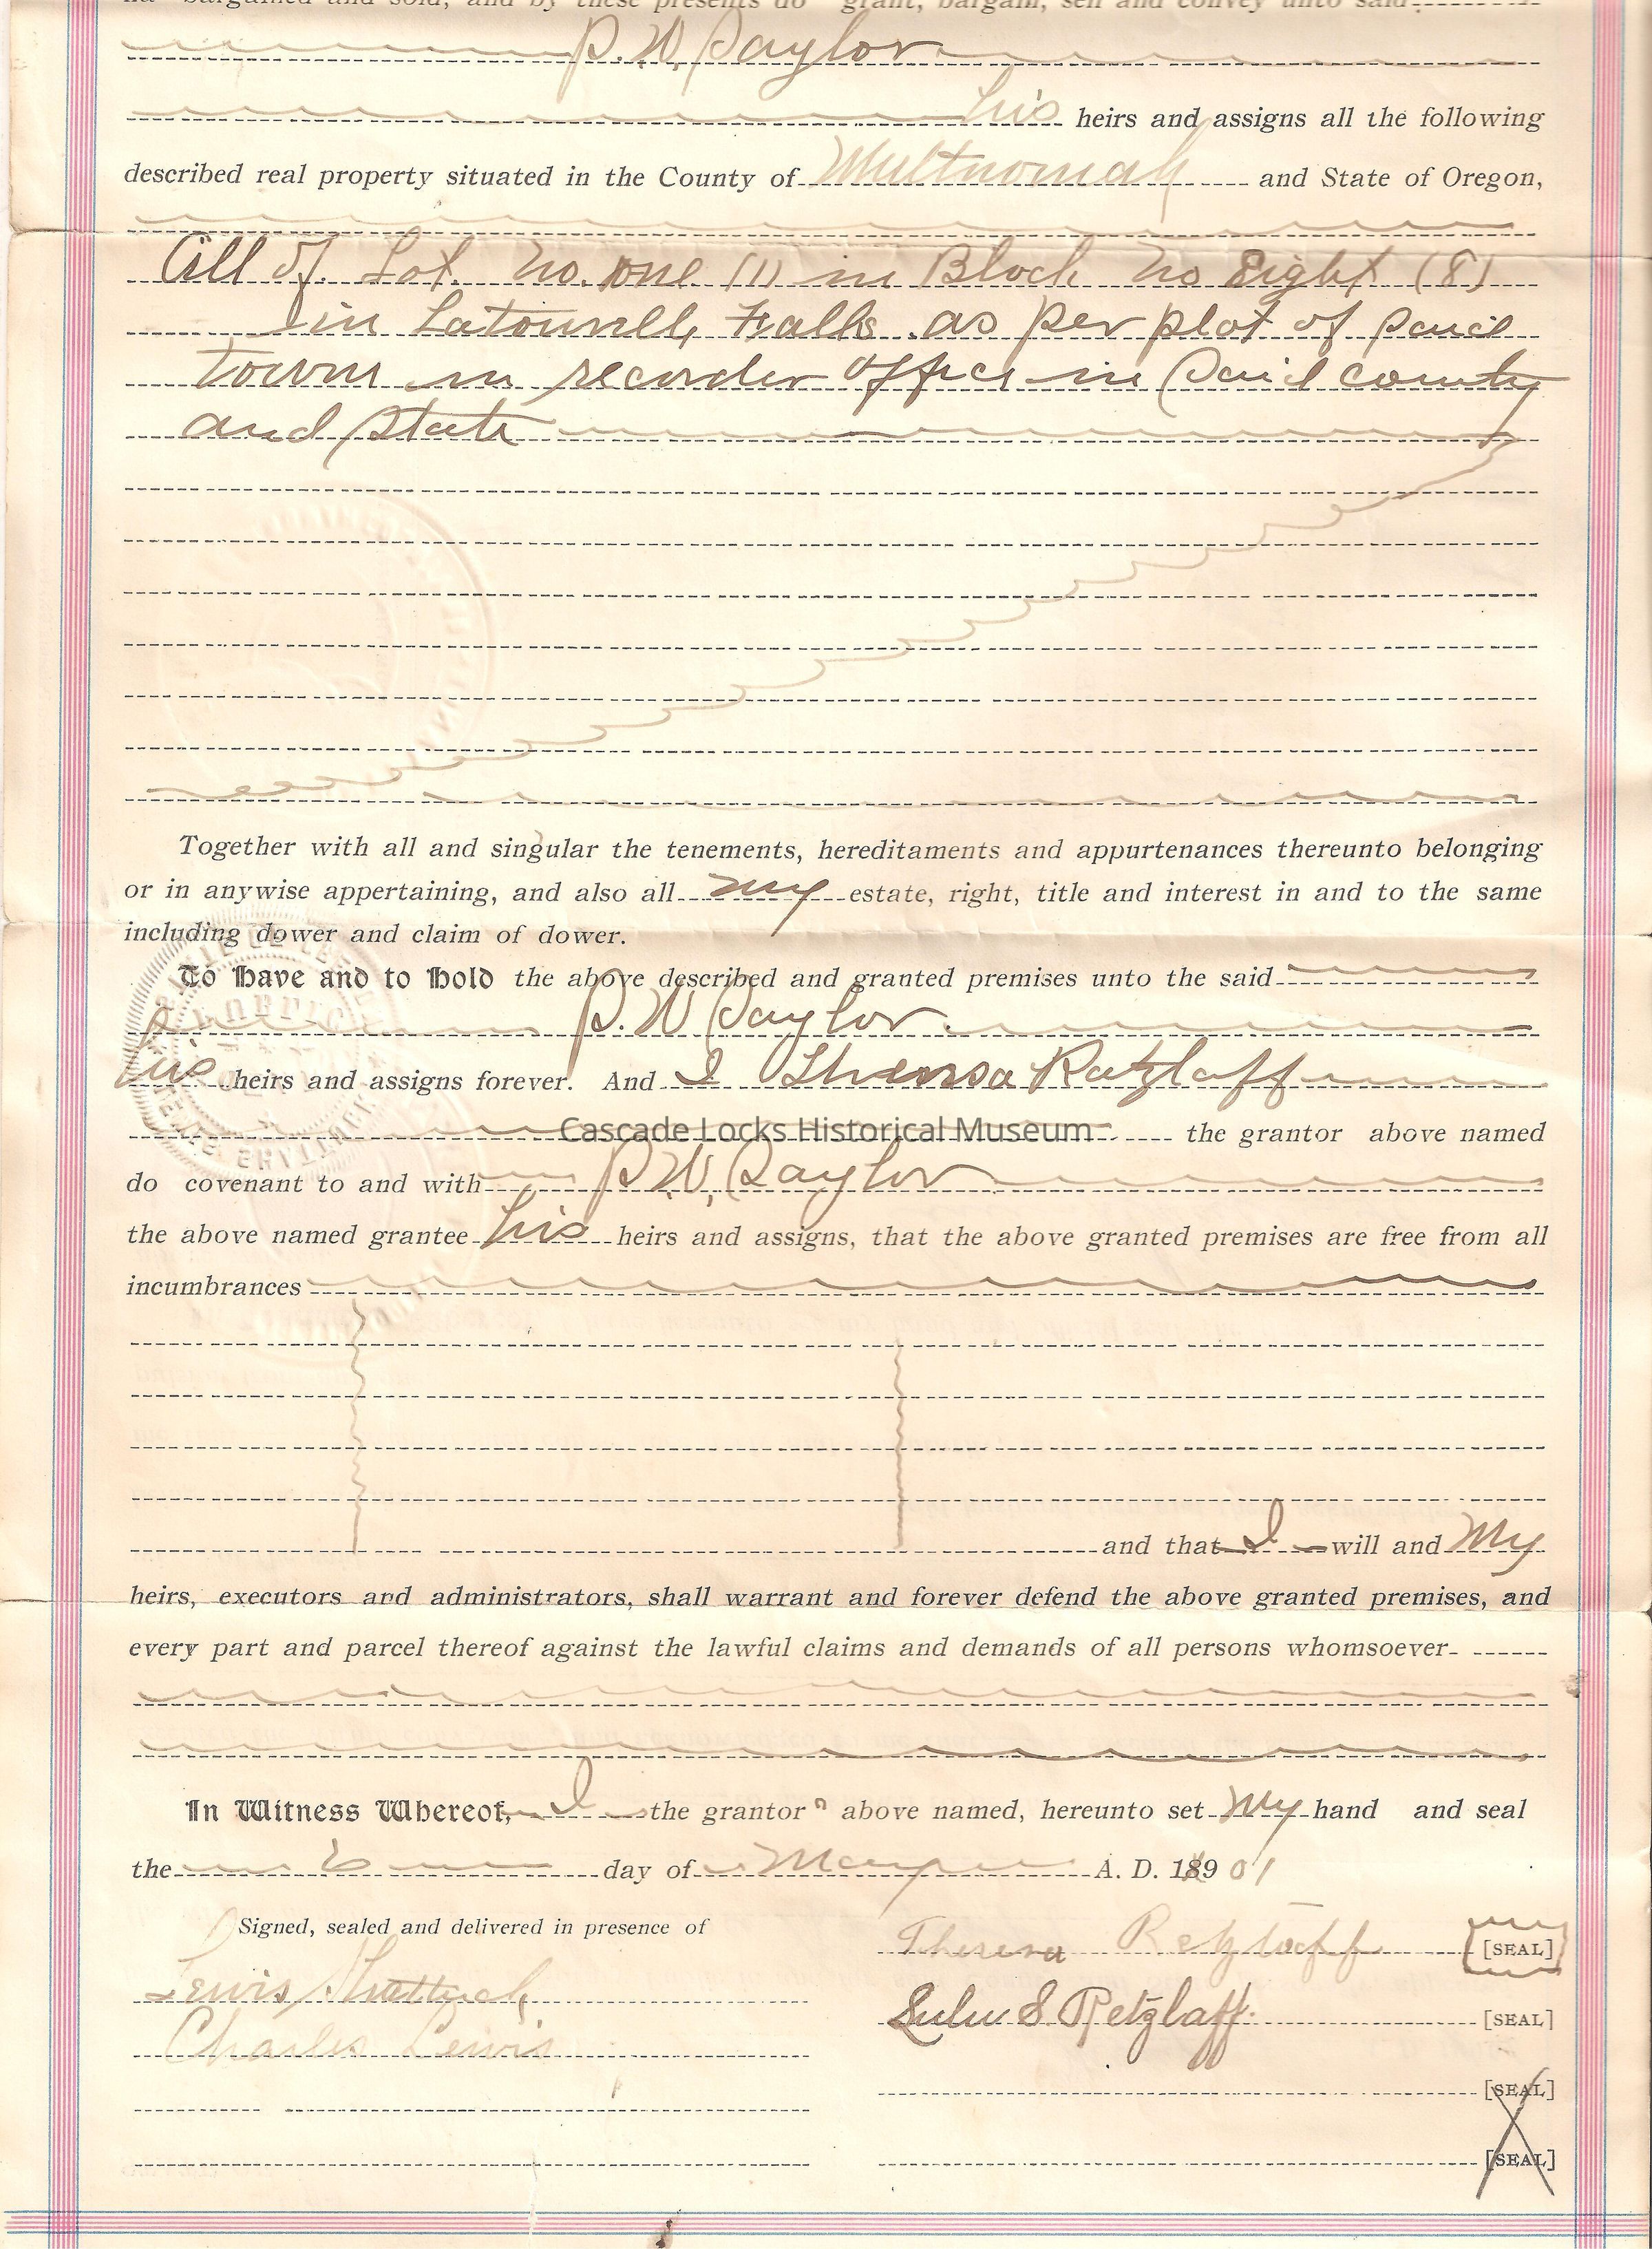 bargained and sold, and by these presents do grant, bargain, sell and convey unto said
P. W. Saylor
his heirs and assigns all the following
described real property situated in the County of Multnomah and State of Oregon,
All of Lot no. one (1) in Block no Eight (8)
in Latourell Falls as per plat of said
town in recorder office in said county
and state
Together with all and singular the tenements, hereditaments and appurtenances thereunto belonging
or in anywise appertaining, and also all my estate, right, title and interest in and to the same
including dower and claim of dower.
To Have and to Hold the above described and granted premises unto the said
P. W Saylor
his heirs and assigns forever. And I Theresa Retzlaff
Cascade Locks Historical Museum the grantor above named
do covenant to and with P. W. Saylor
the above named grantee his heirs and assigns, that the above granted premises are free from all
incumbrances
and that I will and My
heirs, executors and administrators, shall warrant and forever defend the above granted premises, and
every part and parcel thereof against the lawful claims and demands of all persons whomsoever
In Witness Whereof, I the grantor above named, hereunto set My hand and seal
the 6 day of May A. D. 189 01
Signed, sealed and delivered in presence of
Theresa Retzlaff [SEAL]
Lewis Shattuck
Lulu S Retzlaff. [SEAL]
Charles Lewis
[SEAL]
[SEAL]